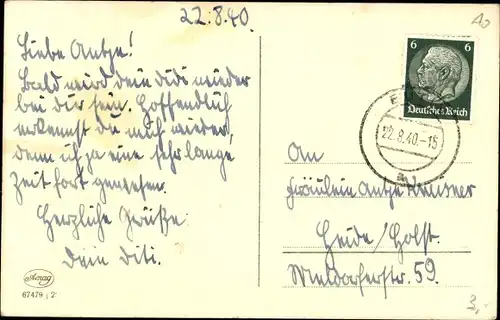 22.8.40.
Liebe Antje!
Bald wird dein Didi wieder
bei dir sein. Hoffendlich
erkennst du mich wieder,
denn ich ja eine sehr lange
Zeit fort gewesen.
Herzliche Grüße
Dein Diti.
Amag
67479 / 2
6 6
Deutsches Reich
22.8.40.-15
An
Fräulein Antje
Heide/Holst.
Meldorferstr. 59.
3,-